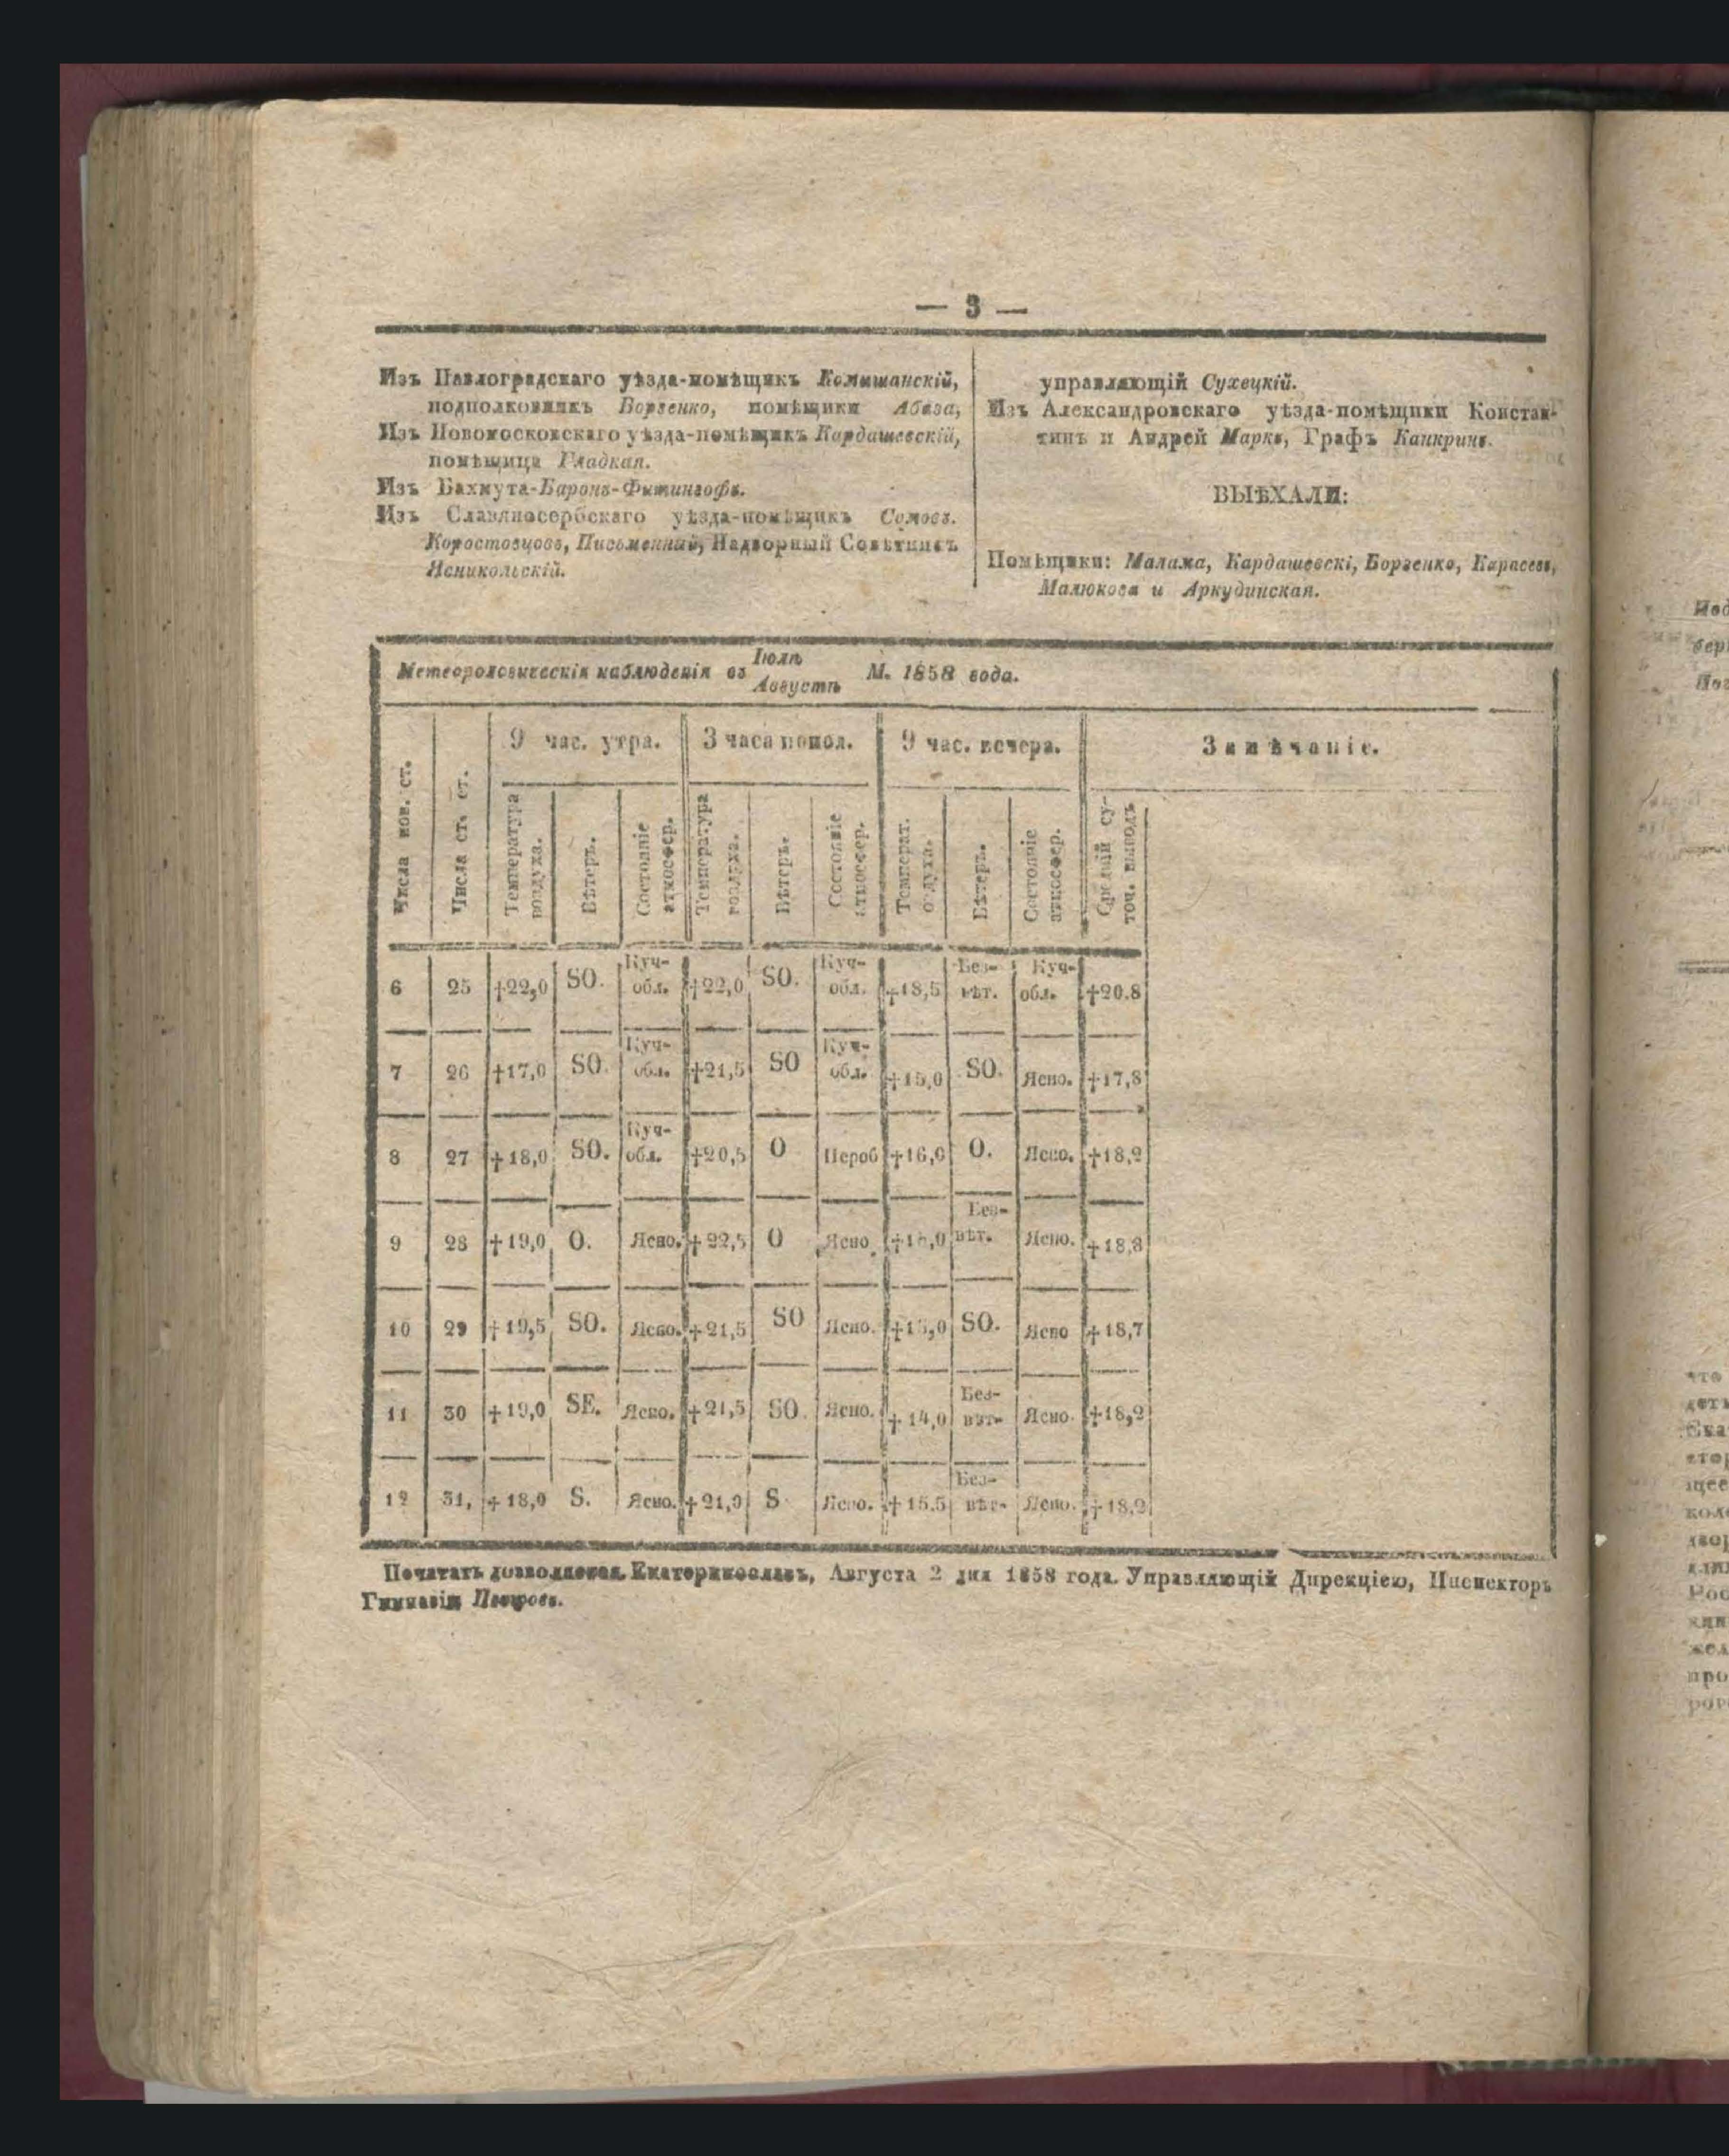 — 3 —
Изъ Павлоградскаго уѣзда-помѣщикъ Комышанскій,
подполковникъ Борзенко, помѣщики Абаза,
Изъ Новомосковскаго уѣзда-помѣщикъ Кардашевскій,
помѣщица Гладкая.
Изъ Бахмута-Баронъ-Фытингофъ.
Изъ Славяносербскаго уѣзда-помѣщикъ Сомовъ.
Коростовцовъ, Письменный, Надворный Совѣтникъ
Ясникольскій.
управляющій Сухецкій.
Изъ Александровскаго уѣзда-помѣщики Констан-
тинъ и Андрей Маркъ, Графъ Канкринъ.
ВЫѢХАЛИ:
Помѣщики: Малама, Кардашевскі, Борзенко, Карасевъ,
Малюкова и Аркудинская.
Метеорологическія наблюденія въ Іюлѣ Августѣ М. 1858 года.
9 час. утра. 3 часа попол. 9 час. вечера. Замѣчаніе.
Числа нов. ст. Числа ст. ст. Температура воздуха. Вѣтеръ. Состояніе атмосфер. Температура воздуха. Вѣтеръ. Состояніе атмосфер. Температ. Вѣтеръ. Состояніе атмосфер. Средній су- точ. выводъ
6 25 +22,0 SO. Куч- обл. +22,0 SO. Куч- обл. +18,5 Без- вѣт. Куч- обл. +20.8
7 26 +17,0 SO. Куч- обл. +21,5 SO Куч- обл. +15,0 SO. Ясно. +17,8
8 27 +18,0 SO. Куч- обл. +20,5 O Пероб +16,0 O. Ясно. +18,2
9 28 +19,0 O. Ясно. +22,5 O Ясно Без- вѣт. Ясно. +18,8
10 29 +19,5 SO. Ясно. +21,5 SO Ясно. +15,0 SO. Ясно +18,7
11 30 +19,0 SE. Ясно. +21,5 SO. Ясно. +14,0 Без- вѣт- Ясно. +18,2
12 31, +18,0 S. Ясно. +21,0 S Ясно. +15.5 Без- вѣт- Ясно. +18,2
Печатать дозволяется. Екатеринославъ, Августа 2 дня 1858 года. Управляющій Дирекціею, Инспекторъ
Гимназіи Петровъ.